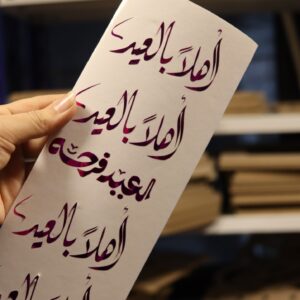 أهلاً بالعيد
أهلاً بالعيد
العيد فرحة
أهلاً بالعيد
أهلاً بالعيد